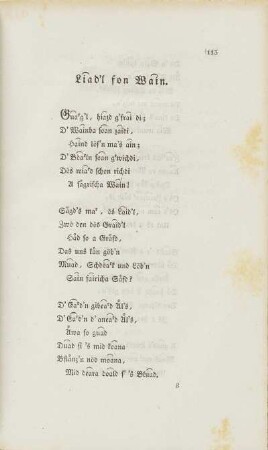 113
Liad'l fon Wain.
Guá'g'l, hiazd g'frai di;
D' Wainba san zaidi,
Haind lös'n ma's ain;
D' Bea'in sean g'wichdi,
Dös wia'd schen richdi
A fäerischa Wain!
Sägd's ma', ös Laid'l,
Zwö den dös Graid'l
Häd so a Gräfd,
Das uns kån göb'n
Muad, Schdea'k und Löb'n
Sain fairicha Säfd?
D' Ea'd'n gibea'd Äl's,
D' Ea'd'n d' anea'd Äl's,
Åwa so guad
Duad si 's mid koana
Bstånz'n nöd moana,
Mid deara doald s' 's Bluad.
8